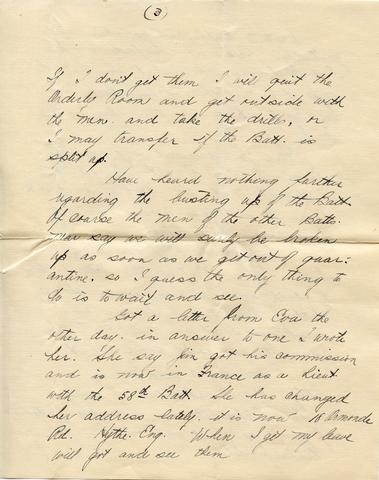 (3)
If I don't get them I will quit the
Orderly Room and get outside with
the men and take the drills, or
I may transfer if the Batt. is
split up.
Have heard nothing farther
regarding the busting up of the Batt.
Of coarse the men of the other Batts.
say we will surely be broken
up as soon as we get out of quar-
antine, so I guess the only thing to
do is to wait and see.
Got a letter from Eva the
other day. in answer to one I wrote
her. She say Jim got his commission
and is now in France as a Lieut
with the 58th Batt. She has changed
her address lately. it is now
Rd. Hythe. Eng. When I get my leave
will got and see them